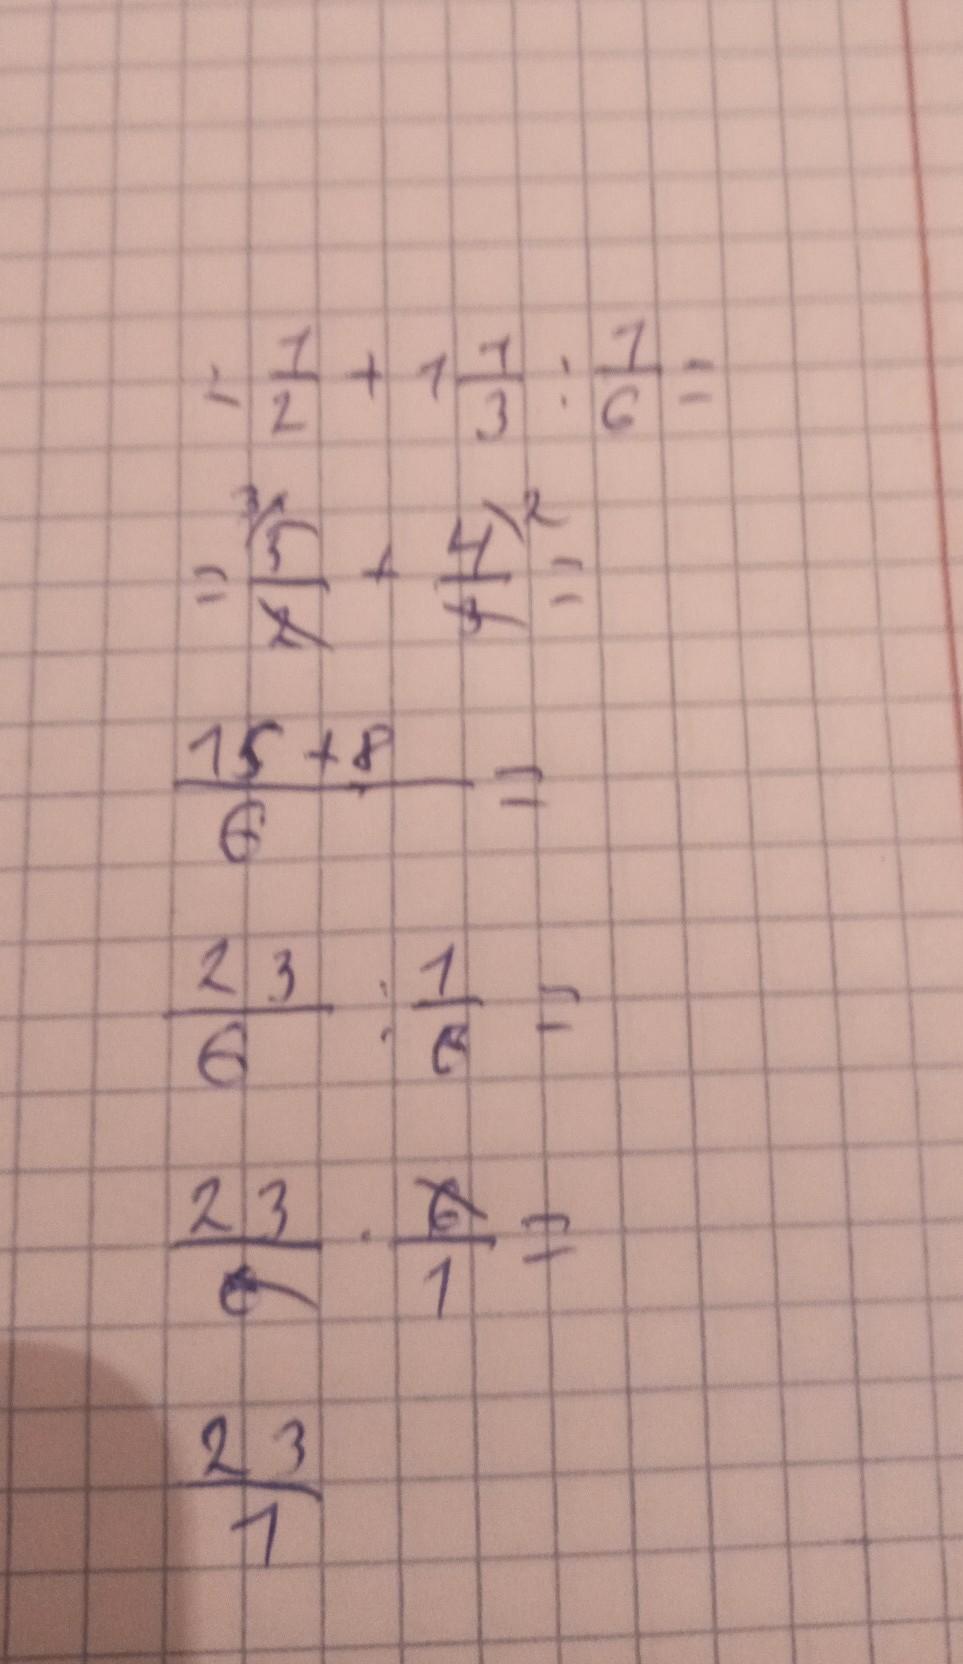 ÷ 1/2 + 1 1/3 : 1/6 =
= ³⁄ 5/2 + 4/3 \² =
15 + 8 / 6 =
23/6 : 1/6 =
23/6 · 6/1 =
23/1